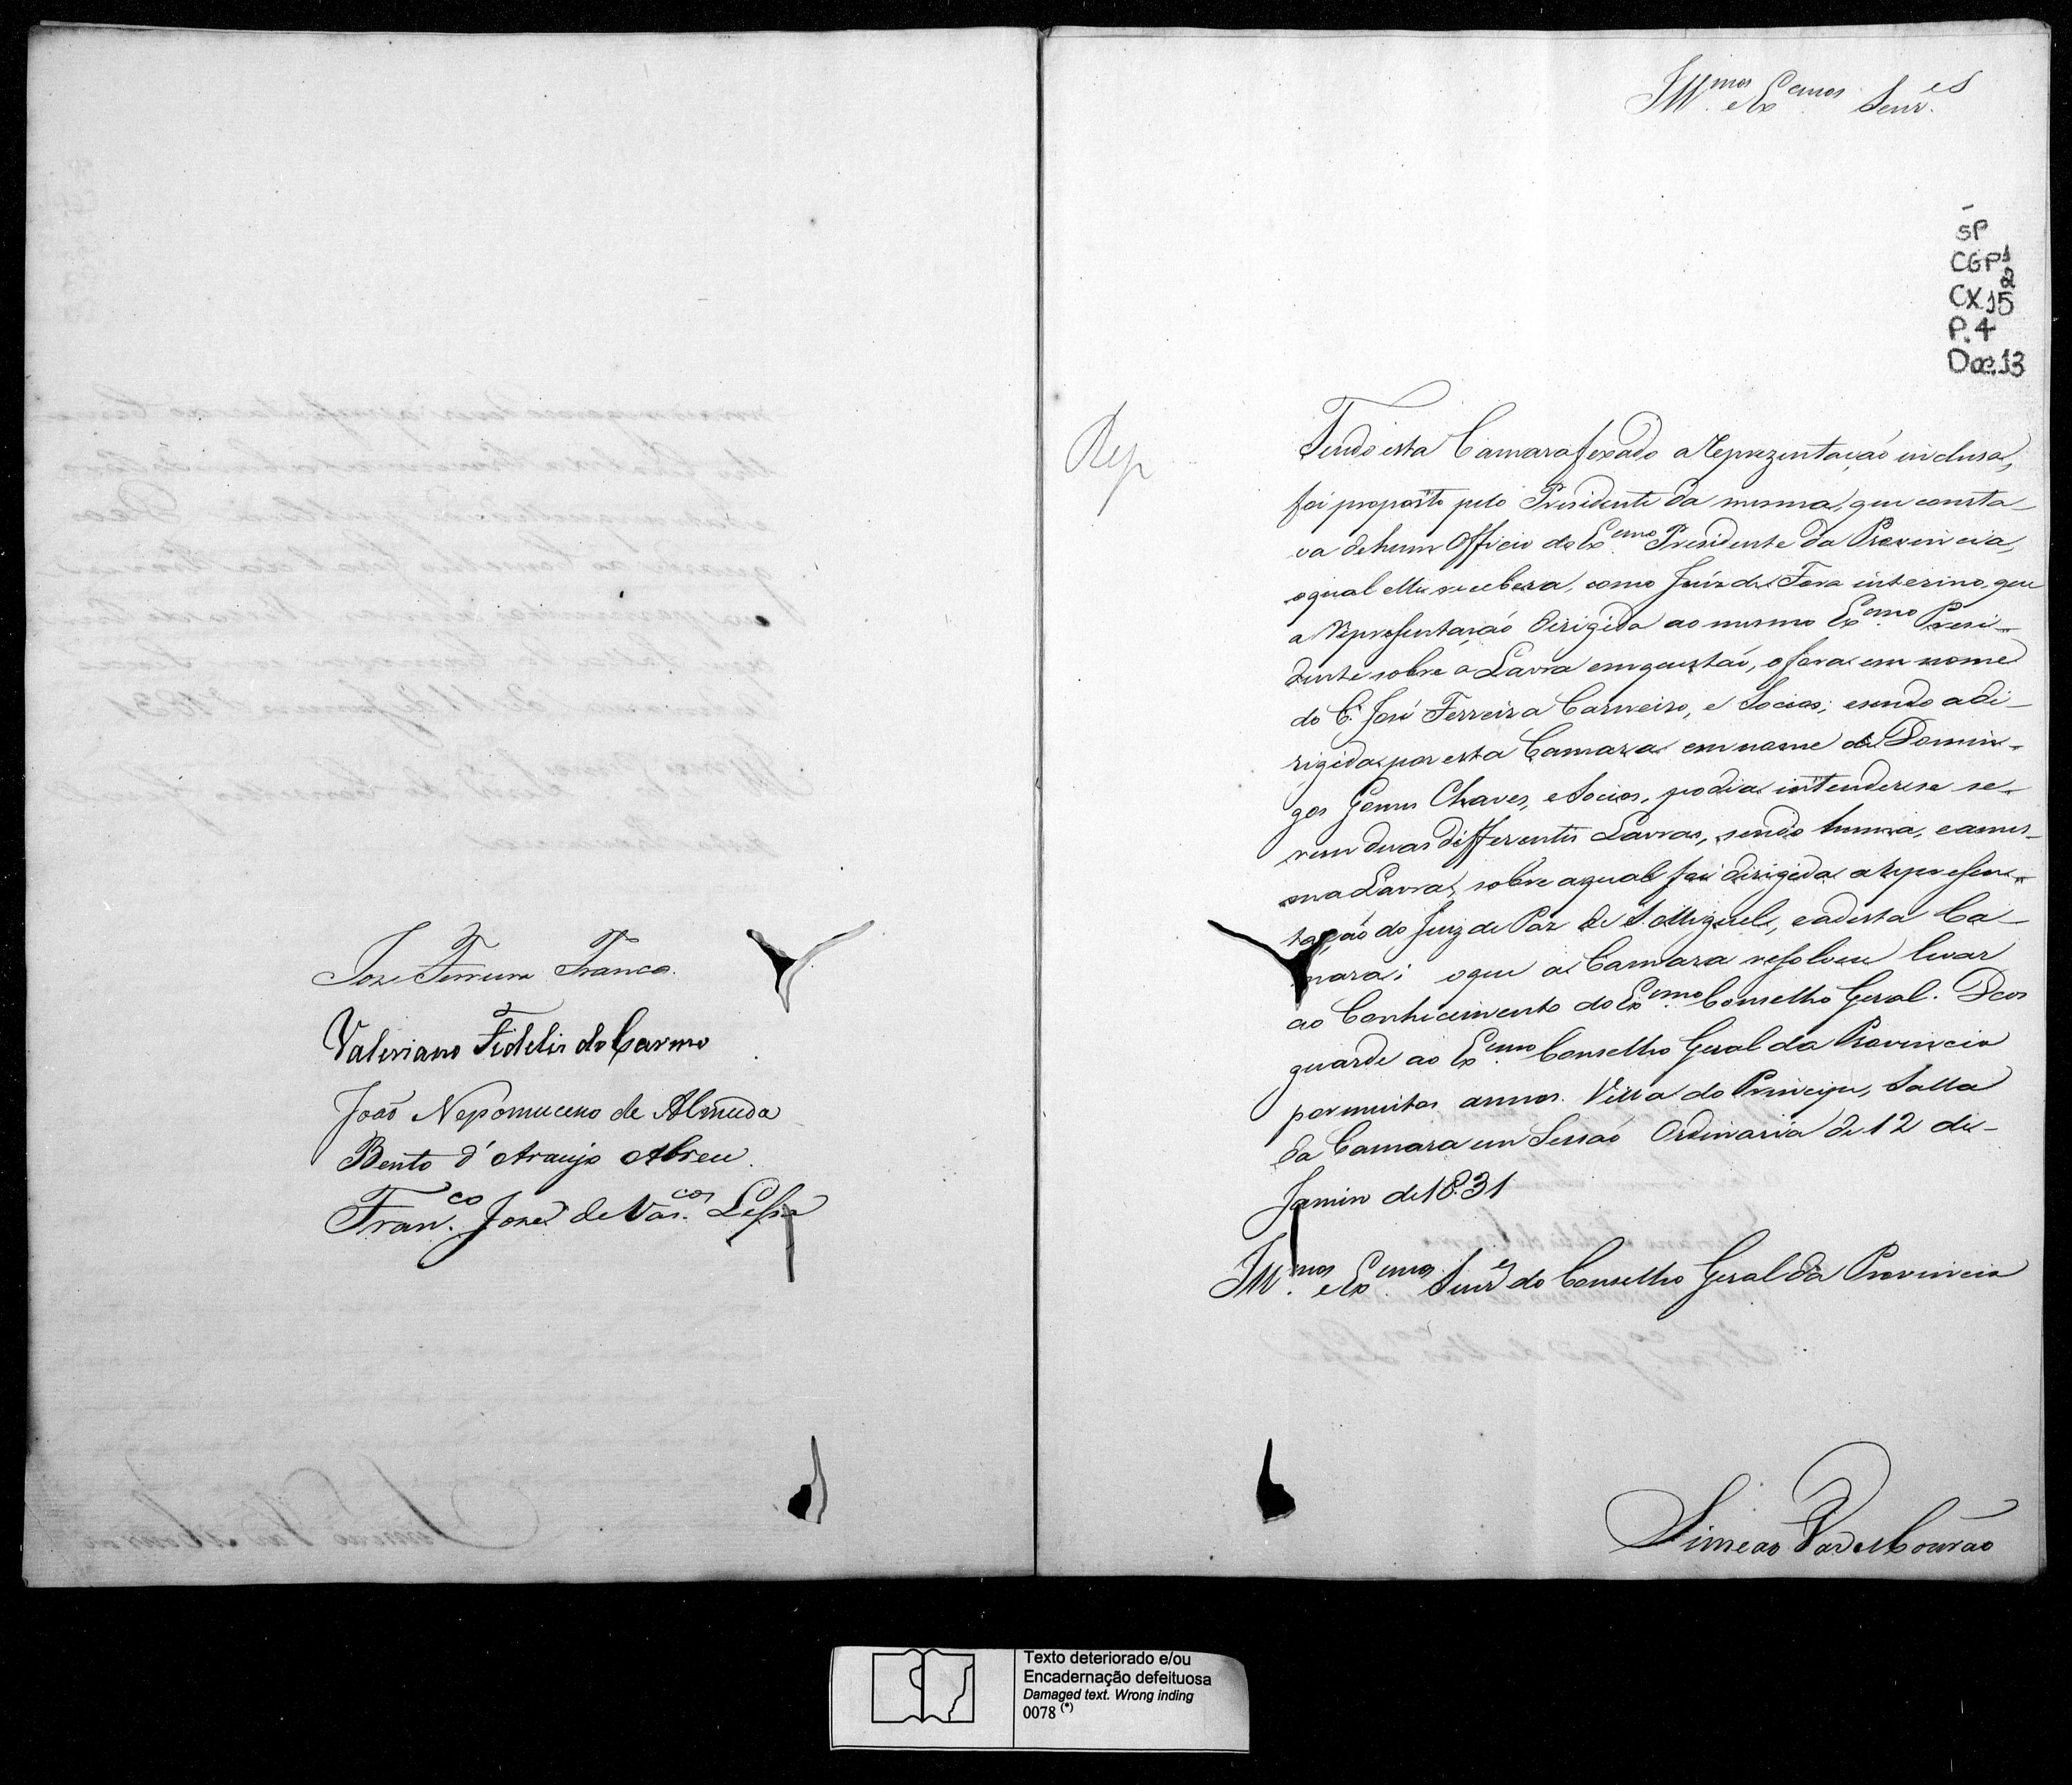 Joze Ferreira Franco.
Valeriano Fidelis do Carmo
João Nepomuceno de Almeida
Bento d'Araujo Abreu.
Fran.co Joze de Vas.cos Lessa
Ill.mos e Ex.emos Senr.es
SP
CGP1
2
CX.15
P.4
Doc.13
Rep
Tendo esta Camara fexado a Reprezentação inclusa,
foi proposto pelo Presidente da mesma, que consta-
va de hum Officio do Ex.emo Presidente da Provincia,
o qual elle recebera, como Juiz de Fora interino, que
a Representação dirigida ao mesmo Ex.emo Presi-
dente sobre a Lavra em questão, o fora em nome
do C. José Ferreira Carneiro, e Socios; e sendo a di-
rigida por esta Camara em nome de Domin-
gos Gomes Chaves, e Socios, podia intenderse se-
rem duas differentes Lavras, sendo huma, e a mes-
ma Lavra, sobre a qual foi dirigida a represen-
tação do Juiz de Paz de S. Miguel, e a desta Ca-
mara; o que a Camara resolveu levar
ao Conhecimento do Ex.emo Conselho Geral. Deos
guarde ao Ex.emo Conselho Geral da Provincia
por muitos annos. Villa do Principe, Salla
da Camara em Sessão Ordinaria de 12 de
Janr.o de 1831
Ill.mos e Ex.emos Senr.es do Conselho Geral da Provincia
Simeão Vaz Mourão
Texto deteriorado e/ou
Encadernação defeituosa
Damaged text. Wrong inding
0078 (*)